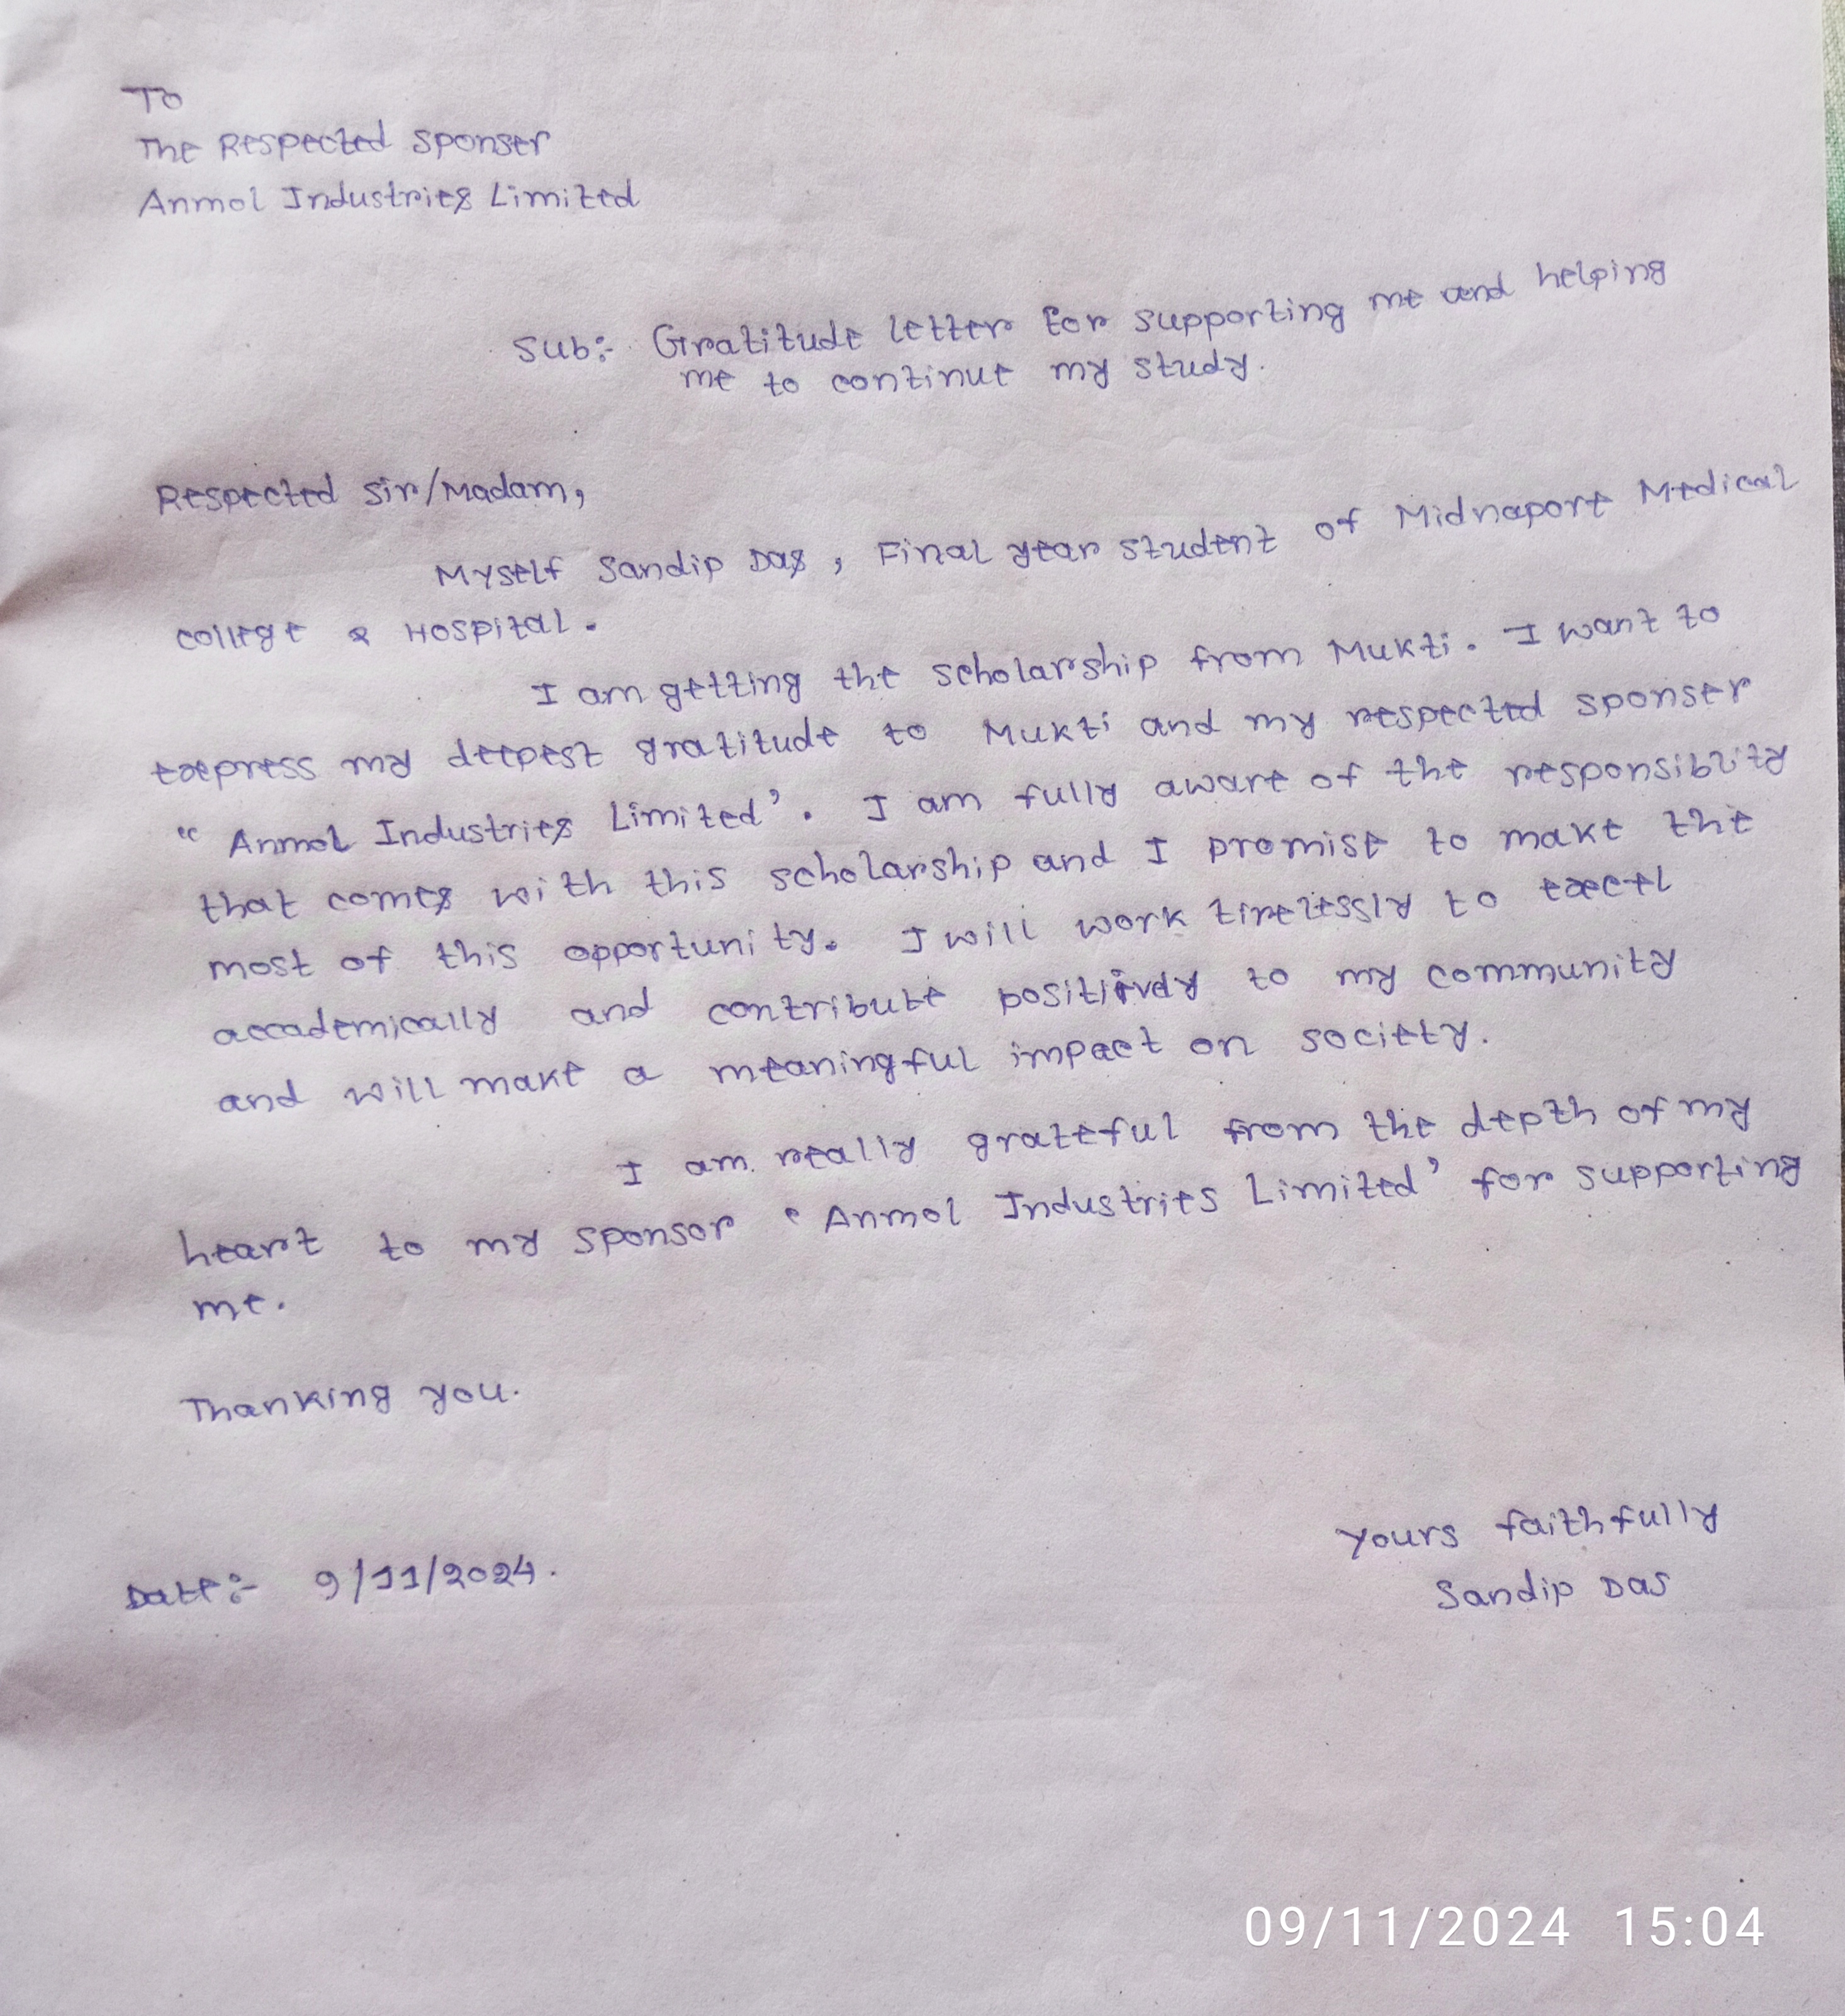 To
The Respected Sponser
Anmol Industries Limited
Sub:- Gratitude letter for supporting me and helping
me to continue my study.
Respected Sir/Madam,
Myself Sandip Das, Final year student of Midnapore Medical
College & Hospital.
I am getting the scholarship from Mukti. I want to
express my deepest gratitude to Mukti and my respected sponser
"Anmol Industries Limited'. I am fully aware of the responsiblity
that comes with this scholarship and I promise to make the
most of this opportunity. I will work tirelessly to excel
accademically and contribute positively to my community
and will make a meaningful impact on society.
I am really grateful from the depth of my
heart to my sponsor 'Anmol Industries Limited' for supporting
me.
Thanking you.
Yours faithfully
Date:- 9/11/2024.
Sandip Das
09/11/2024 15:04